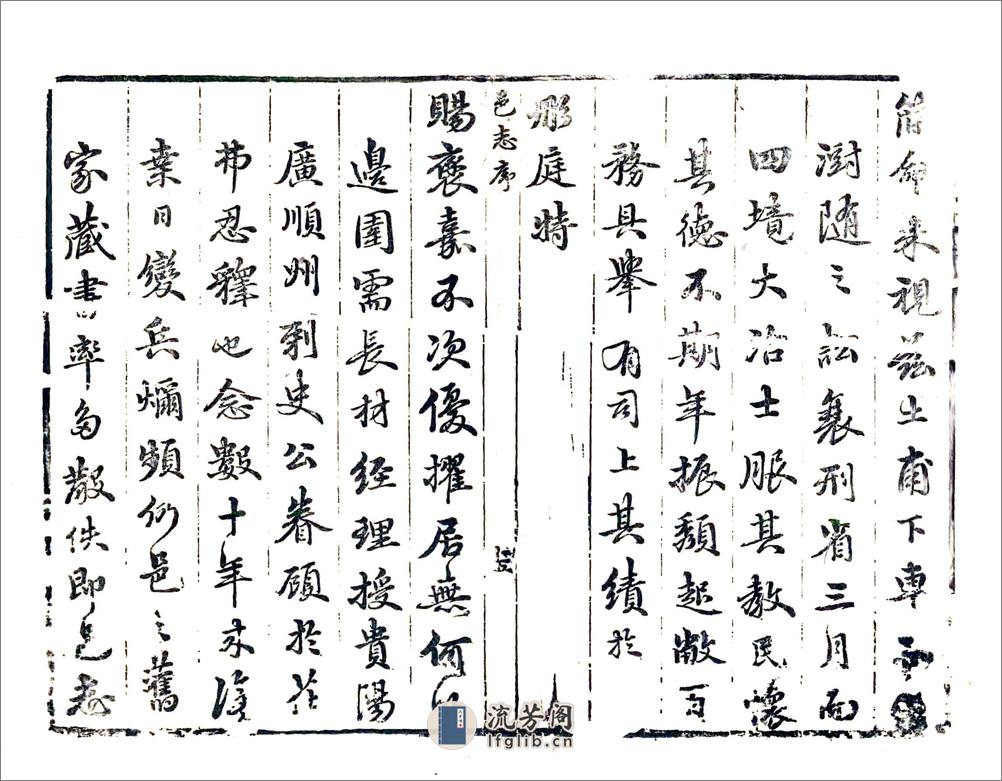 命来視茲土甫下車而
澍随之訟衰刑省三月而
四境大治士服其教民懷
其德不期年振頽起敝百
務具舉有司上其績於
彤庭特
邑志序
賜褒嘉不次優擢居無何以
邊圉需長材经理授貴陽
廣順州刺史公眷顧於茲
弗忍釋也念數十年来滄
桑日變兵燹頻仍邑之舊
家藏書率多散佚即邑志
流芳阁
lfglib.cn